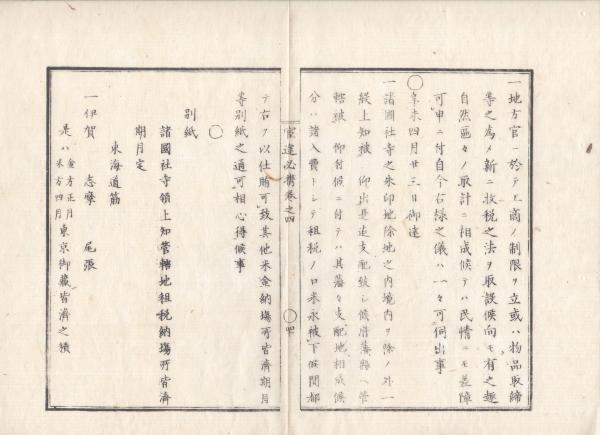 一地方官ニ於テ工商ノ制限ヲ立或ハ物品取締
等之為メ新ニ收税之法ヲ取設候向モ有之趣
自然區々ノ取計ニ相成候テハ民情ニモ差障
可申ニ付自今右様之儀ハ一々可伺出事
〇
辛未四月廿三日御達
一諸國社寺之朱印地除地之内境内ヲ除ノ外一
般上知被 仰出是迄支配致シ候府藩縣ヘ管
轄被 仰付候ニ付テハ其藩々支配地相成候
分ハ諸入費トシテ租税ノ口米永被下候間都
官達必携巻之四
〇四
テ右ヲ以仕賄可致其他米金納塲所皆濟期月
等別紙之通可相心得候事
〇
別紙
諸國社寺領上知管轄地租税納塲所皆濟
期月定
東海道筋
一伊賀 志摩 尾張
是ハ金方正月米方四月東京御藏皆濟之積